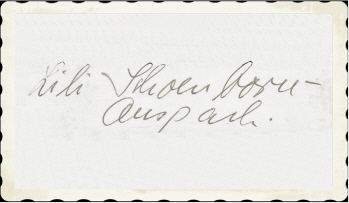 Lili Schoenborn-
Anspach.